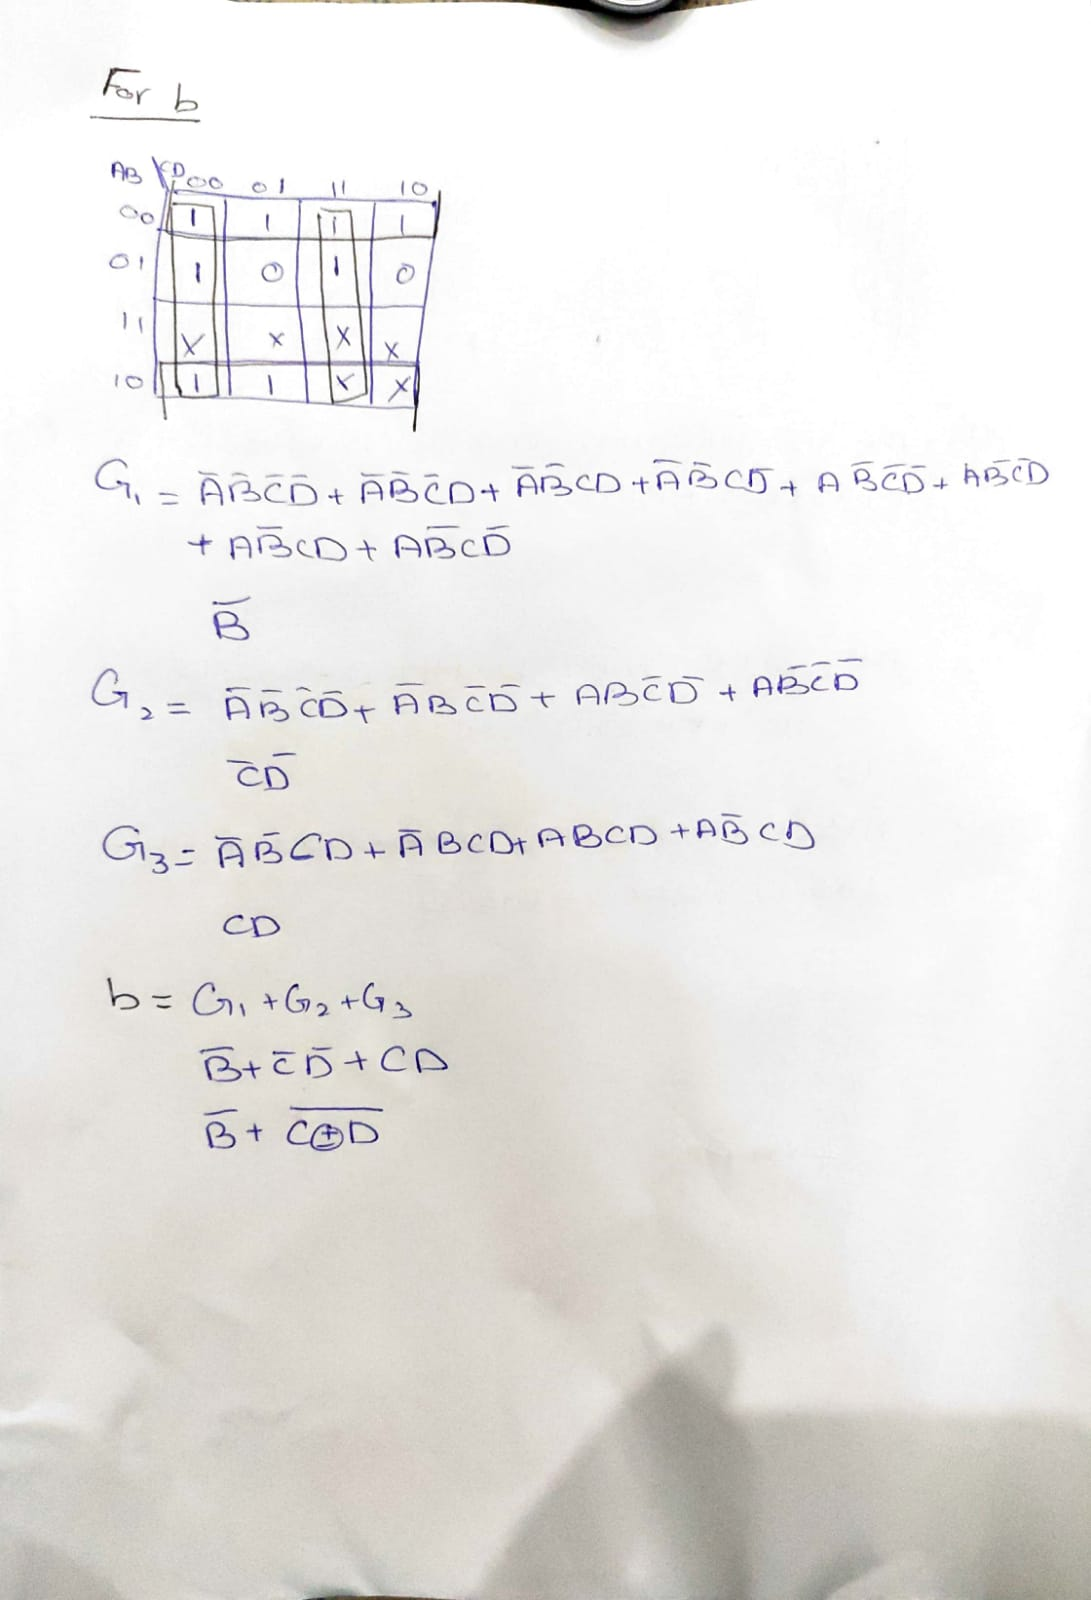 For b
AB CD 00 01 11 10
00 1 1 1 1
01 1 0 1 0
11 X X X X
10 1 1 X X
G₁ = A̅B̅C̅D̅ + A̅B̅C̅D + A̅B̅CD + A̅B̅CD̅ + AB̅C̅D̅ + AB̅C̅D
+ AB̅CD + AB̅CD̅
B̅
G₂ = A̅B̅C̅D̅ + A̅BC̅D̅ + ABC̅D̅ + AB̅C̅D̅
C̅D̅
G₃ = A̅B̅CD + A̅BCD + ABCD + AB̅CD
CD
b = G₁ + G₂ + G₃
B̅ + C̅D̅ + CD
B̅ + C̅⊕̅D̅